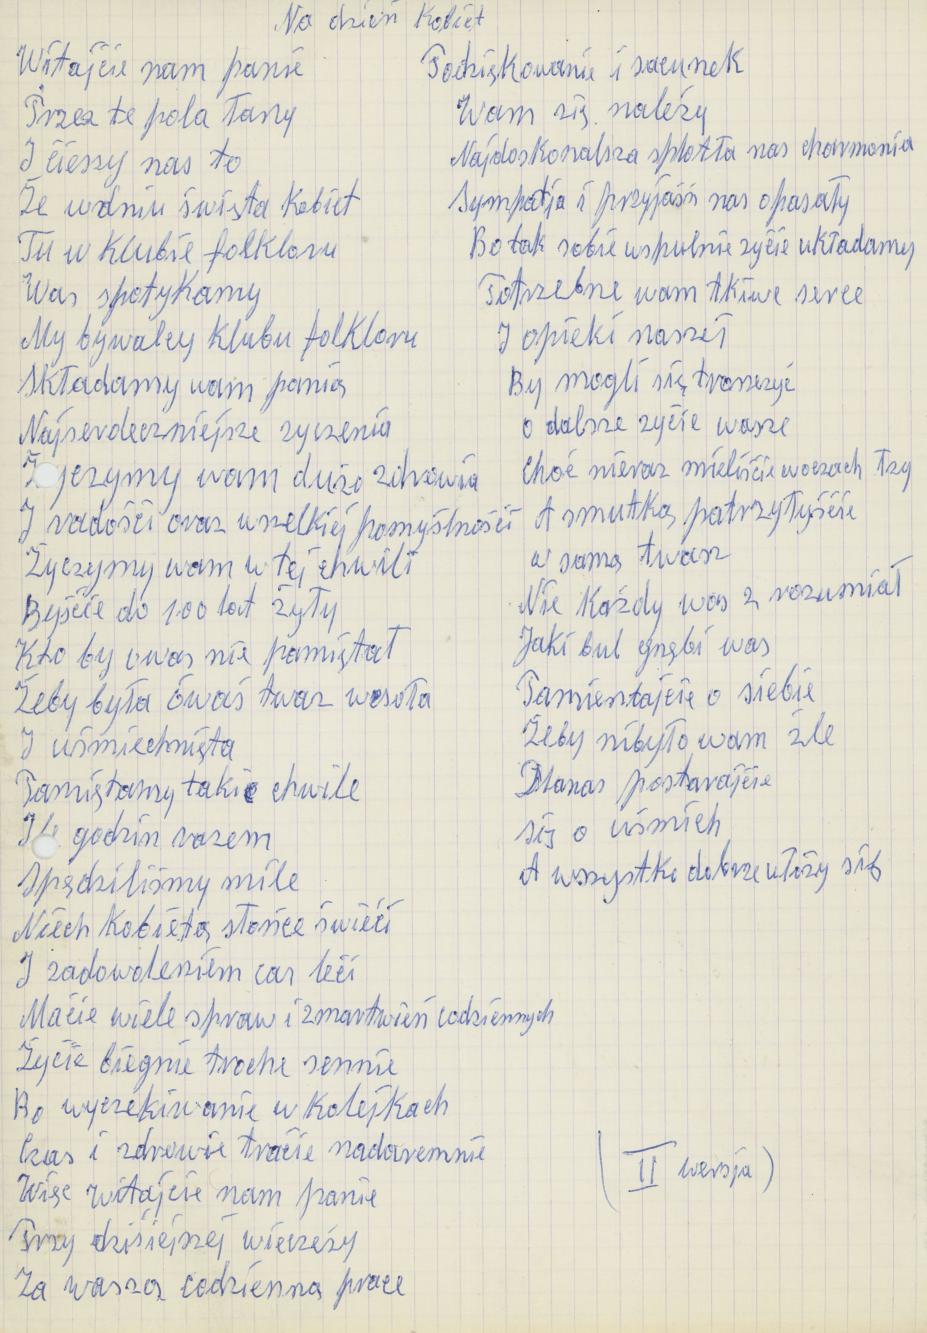 Na dzień Kobiet
Witajcie nam panie
Przez te pola łany
I cieszy nas to
Że wdniu święta Kobiet
Tu w Klubie folkloru
Was spotykamy
My bywalcy Klubu folkloru
Składamy wam panią
Najserdeczniejsze zyczenia
życzymy wam dużo zdrowia
I radości oraz wszelkiej pomyślności
Życzymy wam w tej chwili
Byście do 100 lat żyły
Kto by owas nie pamiętał
Żeby była ówaś twaz wesoła
I uśmiechnięta
Pamiętamy takie chwile
Ile godzin razem
Spędziliśmy mile
Niech Kobietą słońce świeci
I zadowoleniem czas leci
Macie wiele spraw i zmartwień codziennych
Życie biegnie troche sennie
Bo wyczekiwanie w Kolejkach
Czas i zdrowie tracie nadaremnie
Więc witajcie nam panie
Przy dzisiejszej wieczeży
Za waszą codzienną prace
Podziękowanie i sacunek
Wam się należy
Najdoskonalsza splotła nas charmonia
Sympatja i przyjaśń nas opasały
Bo tak sobie wspulnie zycie układamy
Potrzebne wam tkiwe serce
I opieki naszej
By mogli się troszczyć
o dalsze zycie wasze
Choć nieraz mieliście woczach łzy
A smutką patrzyłyście
w samą twarz
Nie każdy was z rozumiał
Jaki bul gnębi was
Pamientajcie o siebie
Żeby nibyło wam źle
Dlanas postarajcie
się o uśmich
A wszystko dobrze ułoży się
(II wersja)